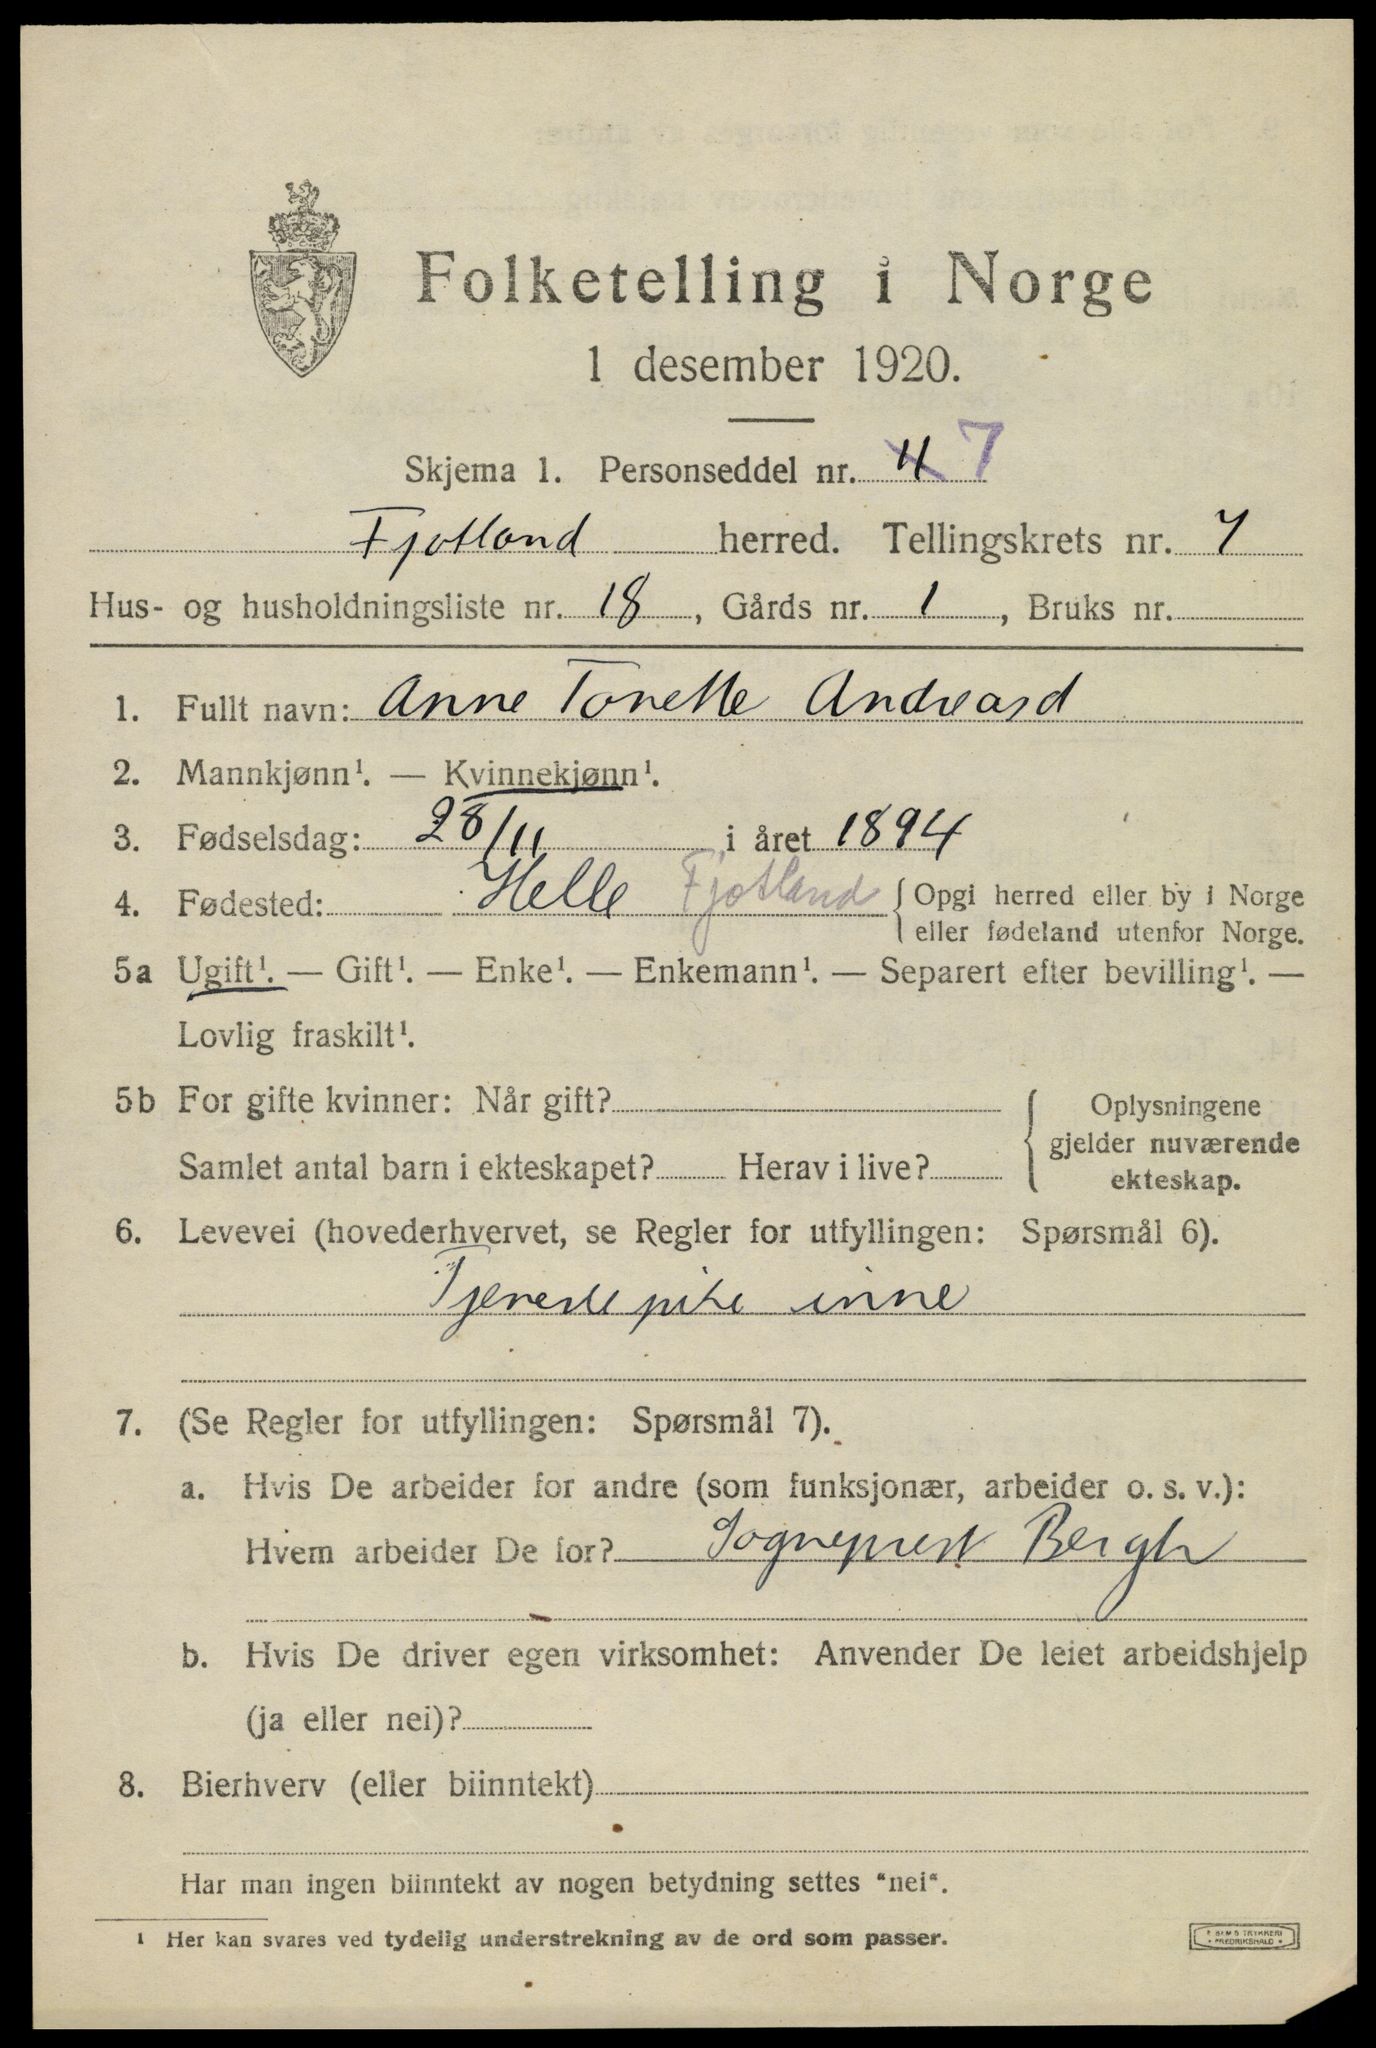 Folketelling i Norge
1 desember 1920.
Skjema 1. Personseddel nr. 11 7
Fjotland herred. Tellingskrets nr. 7
Hus- og husholdningsliste nr. 18, Gårds nr. 1, Bruks nr.
1. Fullt navn: Anne Tonette Andreasd
2. Mannkjønn¹. — Kvinnekjønn¹.
3. Fødselsdag: 28/11 i året 1894
4. Fødested: Helle Fjotland { Opgi herred eller by i Norge
eller fødeland utenfor Norge.
5a Ugift¹. — Gift¹. — Enke¹. — Enkemann¹. — Separert efter bevilling¹. —
Lovlig fraskilt¹.
5b For gifte kvinner: Når gift?
Samlet antal barn i ekteskapet? Herav i live?
Oplysningene
gjelder nuværende
ekteskap.
6. Levevei (hovederhvervet, se Regler for utfyllingen: Spørsmål 6).
Tjenestepike inne
7. (Se Regler for utfyllingen: Spørsmål 7).
a. Hvis De arbeider for andre (som funksjonær, arbeider o. s. v.):
Hvem arbeider De for? Sogneprest Bergh
b. Hvis De driver egen virksomhet: Anvender De leiet arbeidshjelp
(ja eller nei)?
8. Bierhverv (eller biinntekt)
Har man ingen biinntekt av nogen betydning settes "nei".
1 Her kan svares ved tydelig understrekning av de ord som passer.
TRYKKERI
FREDRIKSHALD